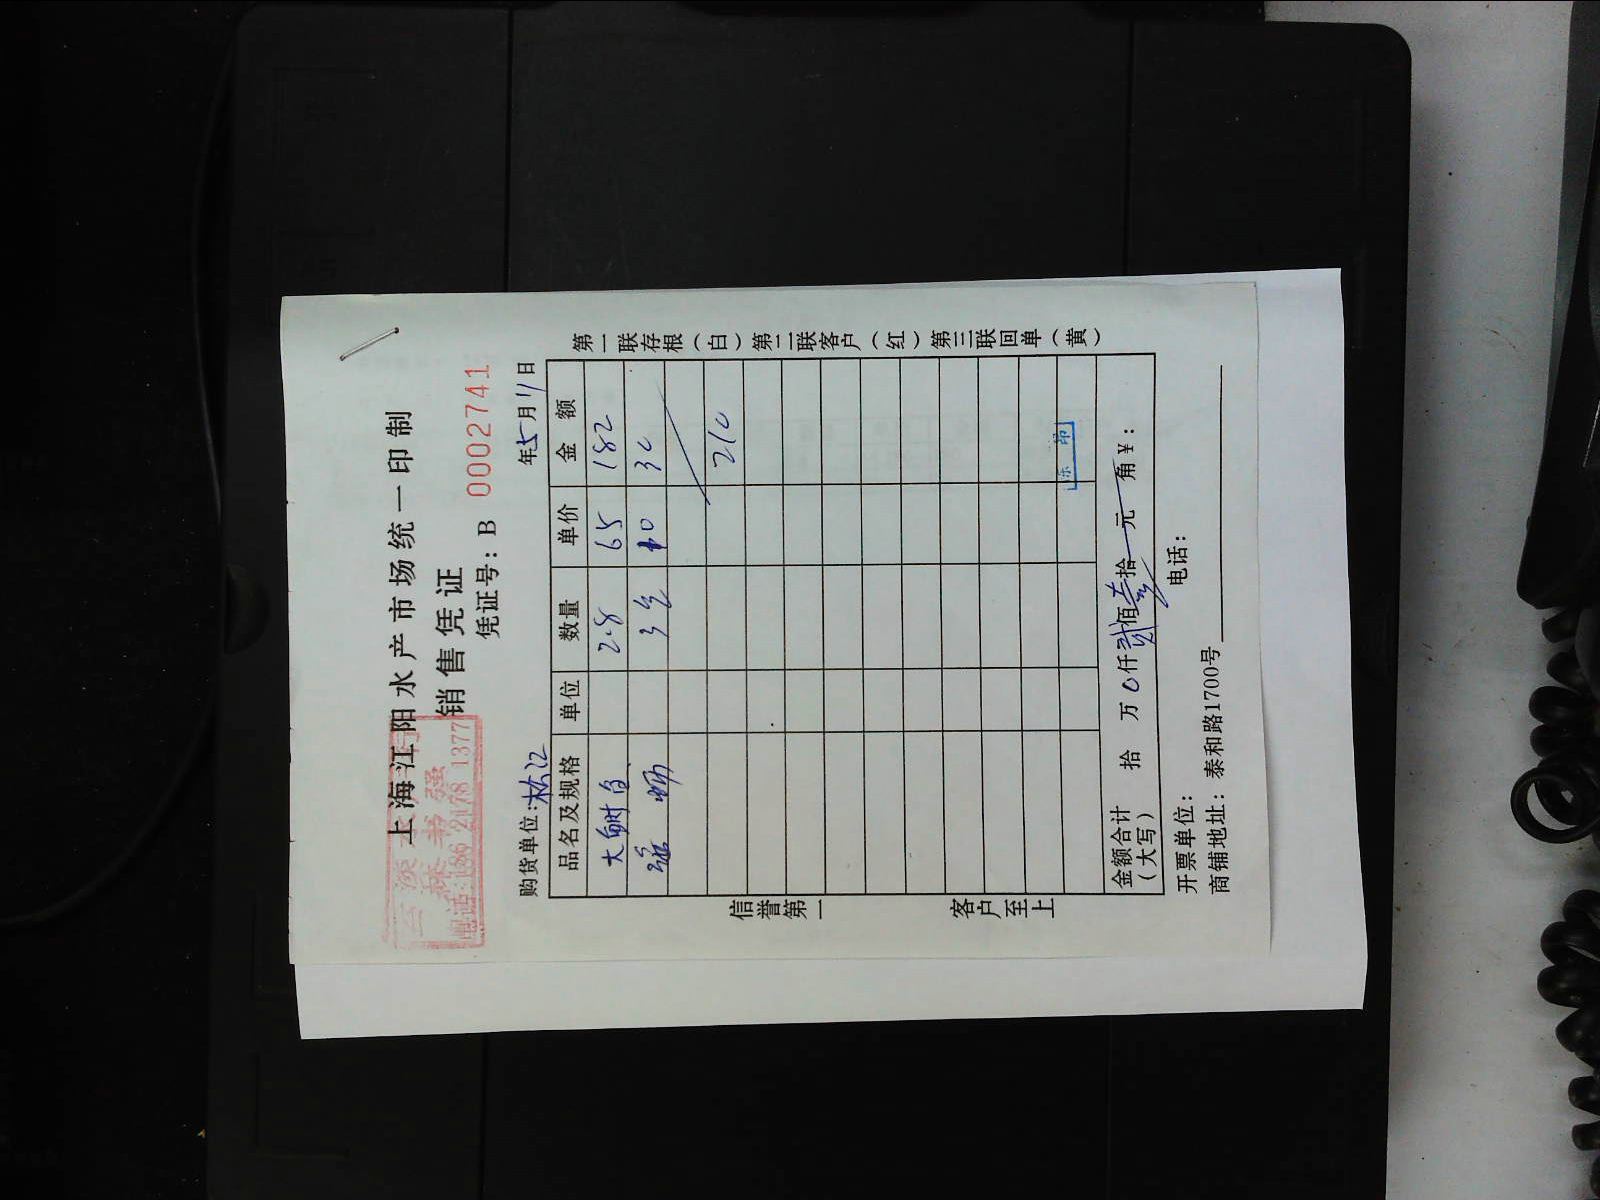 上海江阳水产市场统一印制
销售凭证
凭证号：B 0002741
林书强
电话:186 2178 1377
购货单位：松江
年5月11日
品名及规格 单位 数量 单价 金额
大 2.8 65 182
3 10 30
210
金额合计（大写） 拾 万 0仟 贰佰 拾 元 角￥：
开票单位： 电话：
商铺地址：泰和路1700号
信誉第一 客户至上
第一联存根（白）第二联客户（红）第三联回单（黄）